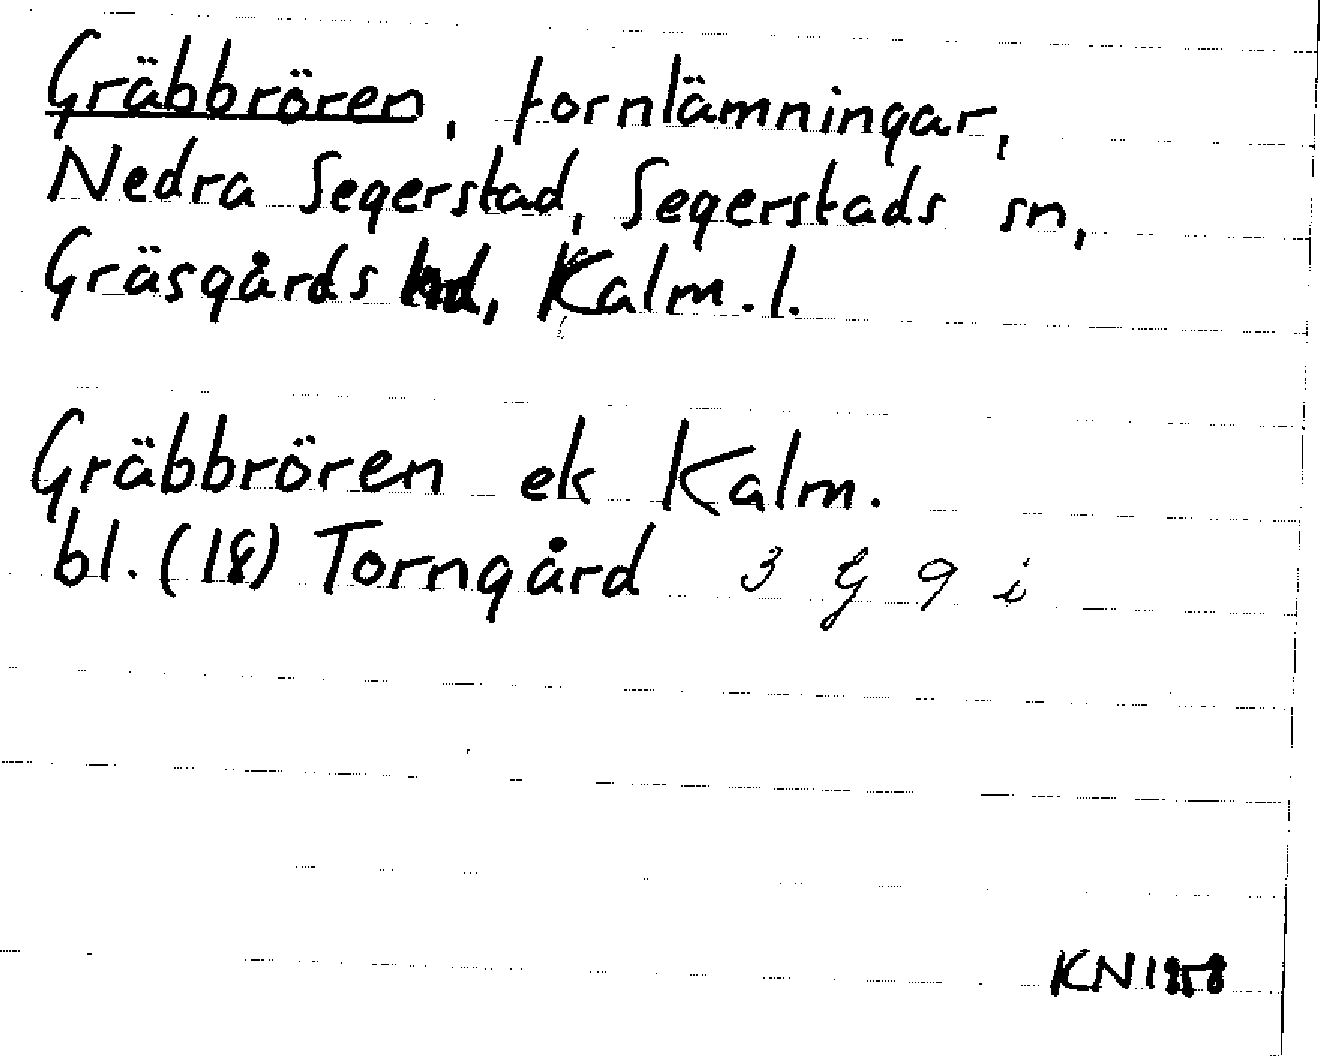 Gräbbrören, fornlämningar,
Nedra Segerstad, Segerstads sn,
Gräsgårds hd, Kalm. l.
Gräbbrören ek Kalm.
bl. (18) Torngård 3 G 9 i
KN 1958